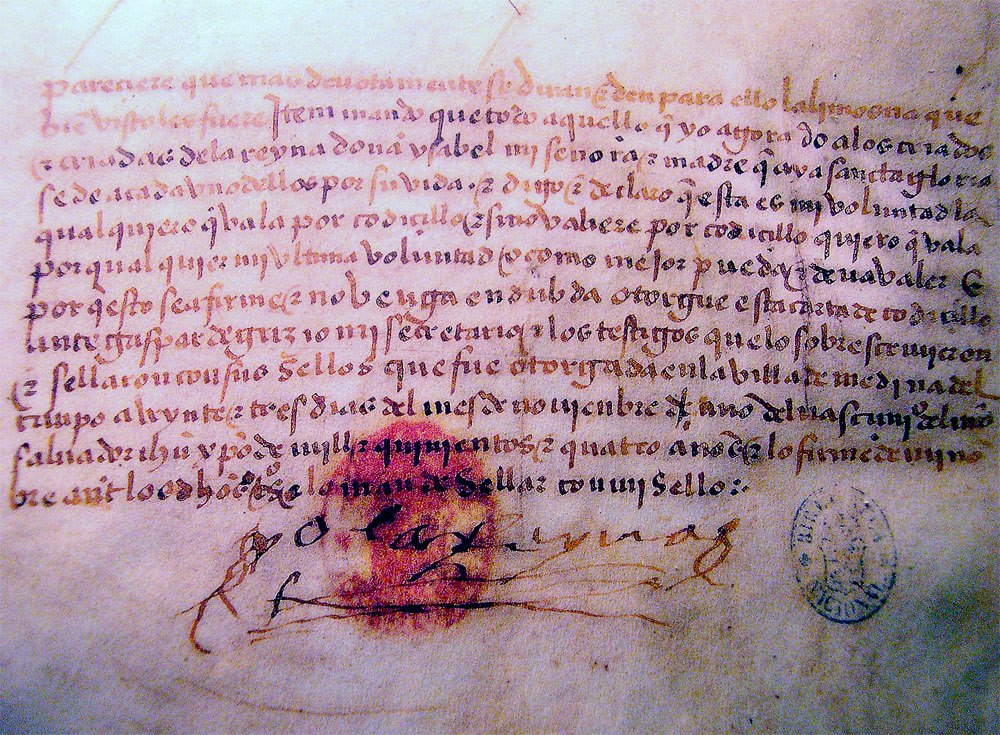 pareciere que mas devotamente se diran ⁊ den para ello la limosna que
bien visto les fuere Item mando que todo aquello q̃ yo agora do a los criados
⁊ criadas de la reyna doña ysabel mi señora ⁊ madre q̃ aya sancta gloria
se de a cada uno dellos por su vida. ⁊ digo ⁊ declaro q̃ esta es mi voluntad la
qual quiero q̃ vala por codicillo ⁊ si no valiere por codicillo quiero q̃ vala
por qual quier mi ultima voluntad o como mejor pueda ⁊ deva valer E
por q̃ esto sea firme ⁊ no venga en dubda otorgue esta carta de codicillo
ante gaspar de grizio mi secretario ⁊ los testigos que lo sobrescrivieron
⁊ sellaron con sus sellos que fue otorgada en la villa de medina del
campo a veynte ⁊ tres dias del mes de noviembre del año del nascimi.º del nr̃o
salvador ihũ xp̃o de mill ⁊ quinientos ⁊ quatro años ⁊ lo firme de mi no
bre ant los dhõs tºs ⁊ lo mande sellar con mi sello:
yo la reyna
BIBLIOTECA NACIONAL